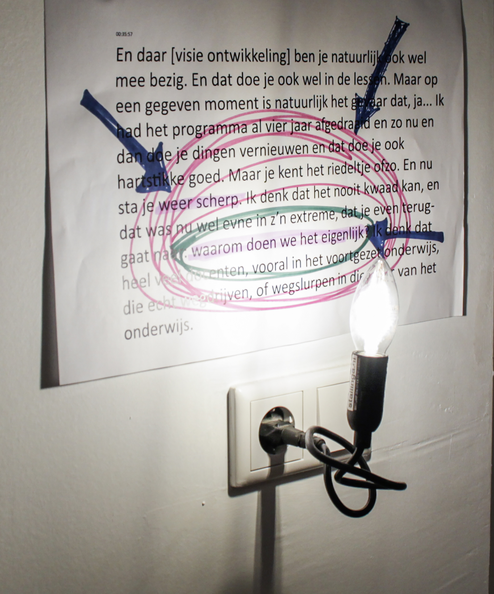 00:05:57
En daar [visie ontwikkeling] ben je natuurlijk ook wel
mee bezig. En dat doe je ook wel in de lessen. Maar op
een gegeven moment is natuurlijk het gevaar dat, ja... Ik
had het programma al vier jaar afgedraaid en zo nu en
dan doe je dingen vernieuwen en dat doe je ook
hartstikke goed. Maar je kent het riedeltje ofzo. En nu
sta je weer scherp. Ik denk dat het nooit kwaad kan, en
dat was nu wel evne in z'n extreme, dat je even terug-
gaat waarom doen we het eigenlijk? Ik denk dat
heel veel docenten, vooral in het voortgezet onderwijs,
die echt of wegslurpen in van het
onderwijs.